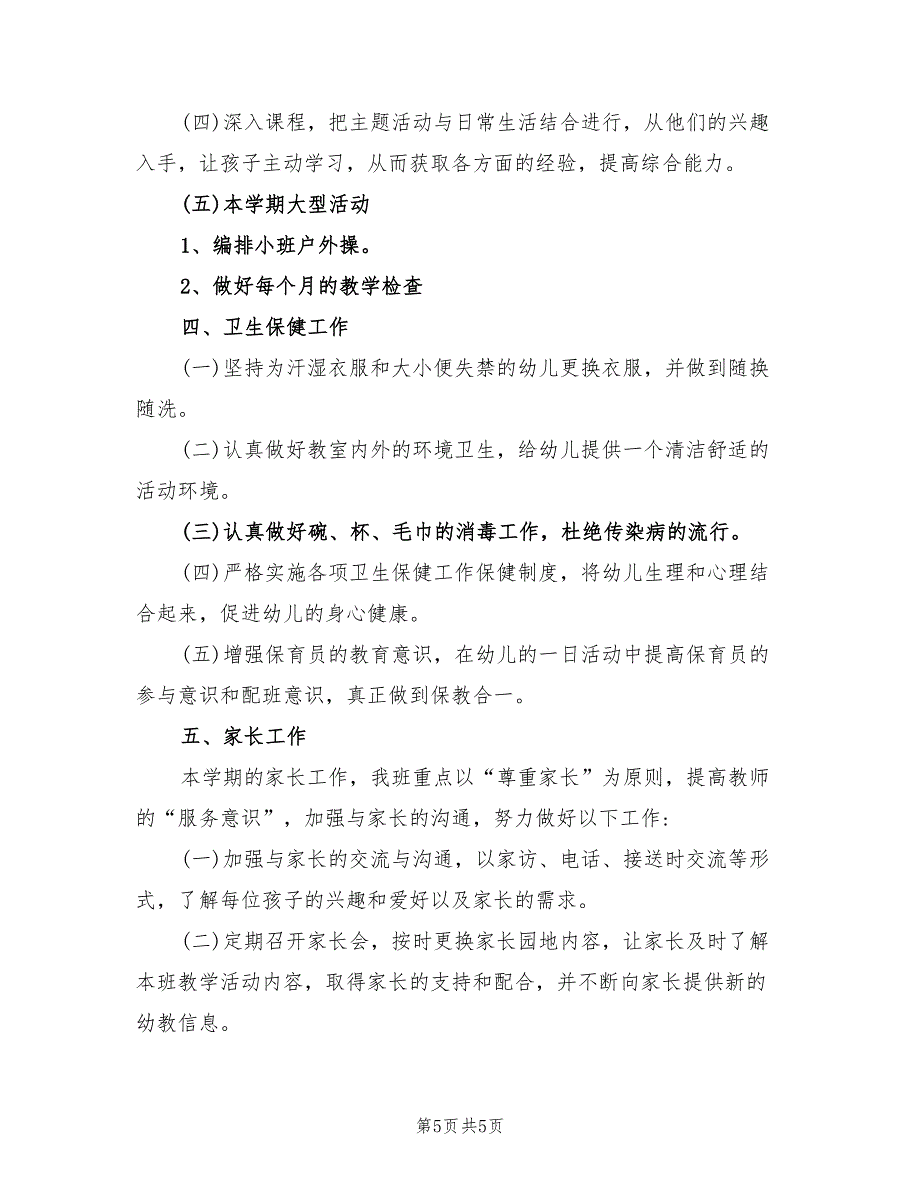 (四)深入课程，把主题活动与日常生活结合进行，从他们的兴趣
入手，让孩子主动学习，从而获取各方面的经验，提高综合能力。
(五)本学期大型活动
1、编排小班户外操。
2、做好每个月的教学检查
四、卫生保健工作
(一)坚持为汗湿衣服和大小便失禁的幼儿更换衣服，并做到随换
随洗。
(二)认真做好教室内外的环境卫生，给幼儿提供一个清洁舒适的
活动环境。
(三)认真做好碗、杯、毛巾的消毒工作，杜绝传染病的流行。
(四)严格实施各项卫生保健工作保健制度，将幼儿生理和心理结
合起来，促进幼儿的身心健康。
(五)增强保育员的教育意识，在幼儿的一日活动中提高保育员的
参与意识和配班意识，真正做到保教合一。
五、家长工作
本学期的家长工作，我班重点以“尊重家长”为原则，提高教师
的“服务意识”，加强与家长的沟通，努力做好以下工作:
(一)加强与家长的交流与沟通，以家访、电话、接送时交流等形
式，了解每位孩子的兴趣和爱好以及家长的需求。
(二)定期召开家长会，按时更换家长园地内容，让家长及时了解
本班教学活动内容，取得家长的支持和配合，并不断向家长提供新的
幼教信息。
第5页 共5页